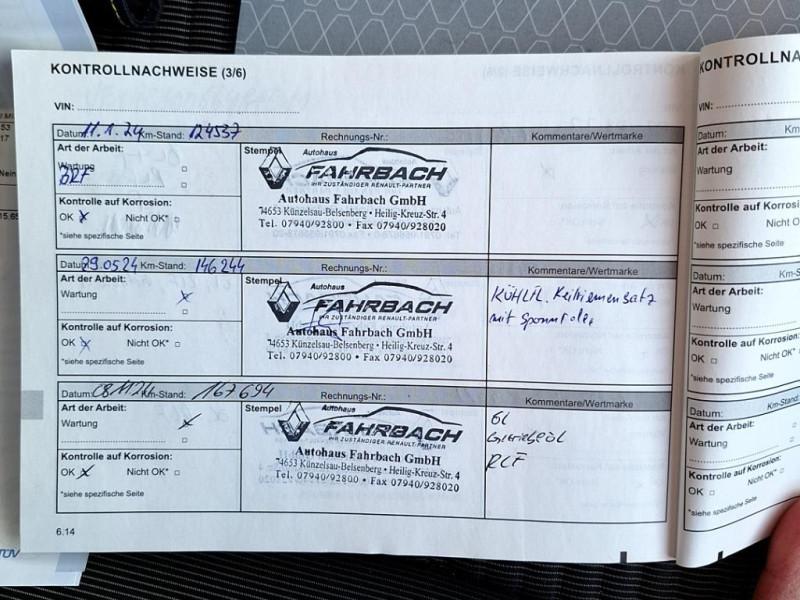 KONTROLLNACHWEISE (3/6)
VIN:
Datum: 11.1.24 Km-Stand: 124537 Rechnungs-Nr.: Kommentare/Wertmarke
Art der Arbeit: Stempel
Wartung
Kontrolle auf Korrosion:
OK X Nicht OK*
*siehe spezifische Seite
Autohaus
FAHRBACH
IHR ZUSTÄNDIGER RENAULT-PARTNER
Autohaus Fahrbach GmbH
74653 Künzelsau-Belsenberg • Heilig-Kreuz-Str. 4
Tel. 07940/92800 • Fax 07940/928020
Datum: 29.05.24 Km-Stand: 146244 Rechnungs-Nr.: Kommentare/Wertmarke
Art der Arbeit: Stempel
Wartung X
Kontrolle auf Korrosion:
OK X Nicht OK*
*siehe spezifische Seite
Autohaus
FAHRBACH
IHR ZUSTÄNDIGER RENAULT-PARTNER
Autohaus Fahrbach GmbH
74653 Künzelsau-Belsenberg • Heilig-Kreuz-Str. 4
Tel. 07940/92800 • Fax 07940/928020
KÜHLFL. Keilriemensatz
mit
Datum: 081124 Km-Stand: 167694 Rechnungs-Nr.: Kommentare/Wertmarke
Art der Arbeit: Stempel
Wartung X
Kontrolle auf Korrosion:
OK X Nicht OK*
*siehe spezifische Seite
Autohaus
FAHRBACH
IHR ZUSTÄNDIGER RENAULT-PARTNER
Autohaus Fahrbach GmbH
74653 Künzelsau-Belsenberg • Heilig-Kreuz-Str. 4
Tel. 07940/92800 • Fax 07940/928020
Getriebeöl
6.14
KONTROLLNACHW
VIN:
Datum: Km
Art der Arbeit:
Wartung
Kontrolle auf Korrosion:
OK Nicht OK
*siehe spezifische Seite
Datum: Km-S
Art der Arbeit:
Wartung
Kontrolle auf Korrosion:
OK Nicht OK*
*siehe spezifische Seite
Datum: Km-Stand:
Art der Arbeit:
Wartung
Kontrolle auf Korrosion:
OK Nicht OK*
*siehe spezifische Seite